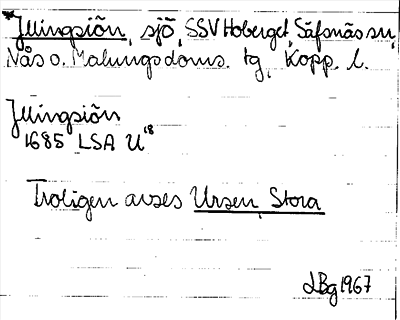 Jllingsiön, sjö, SSV Hoberget, Säfsnäs sn,
Nås o. Malungs doms. tg, Kopp. l.
Jllingsiön
1685 LSA U 18
Troligen avses Ursen, Stora
LBg 1967